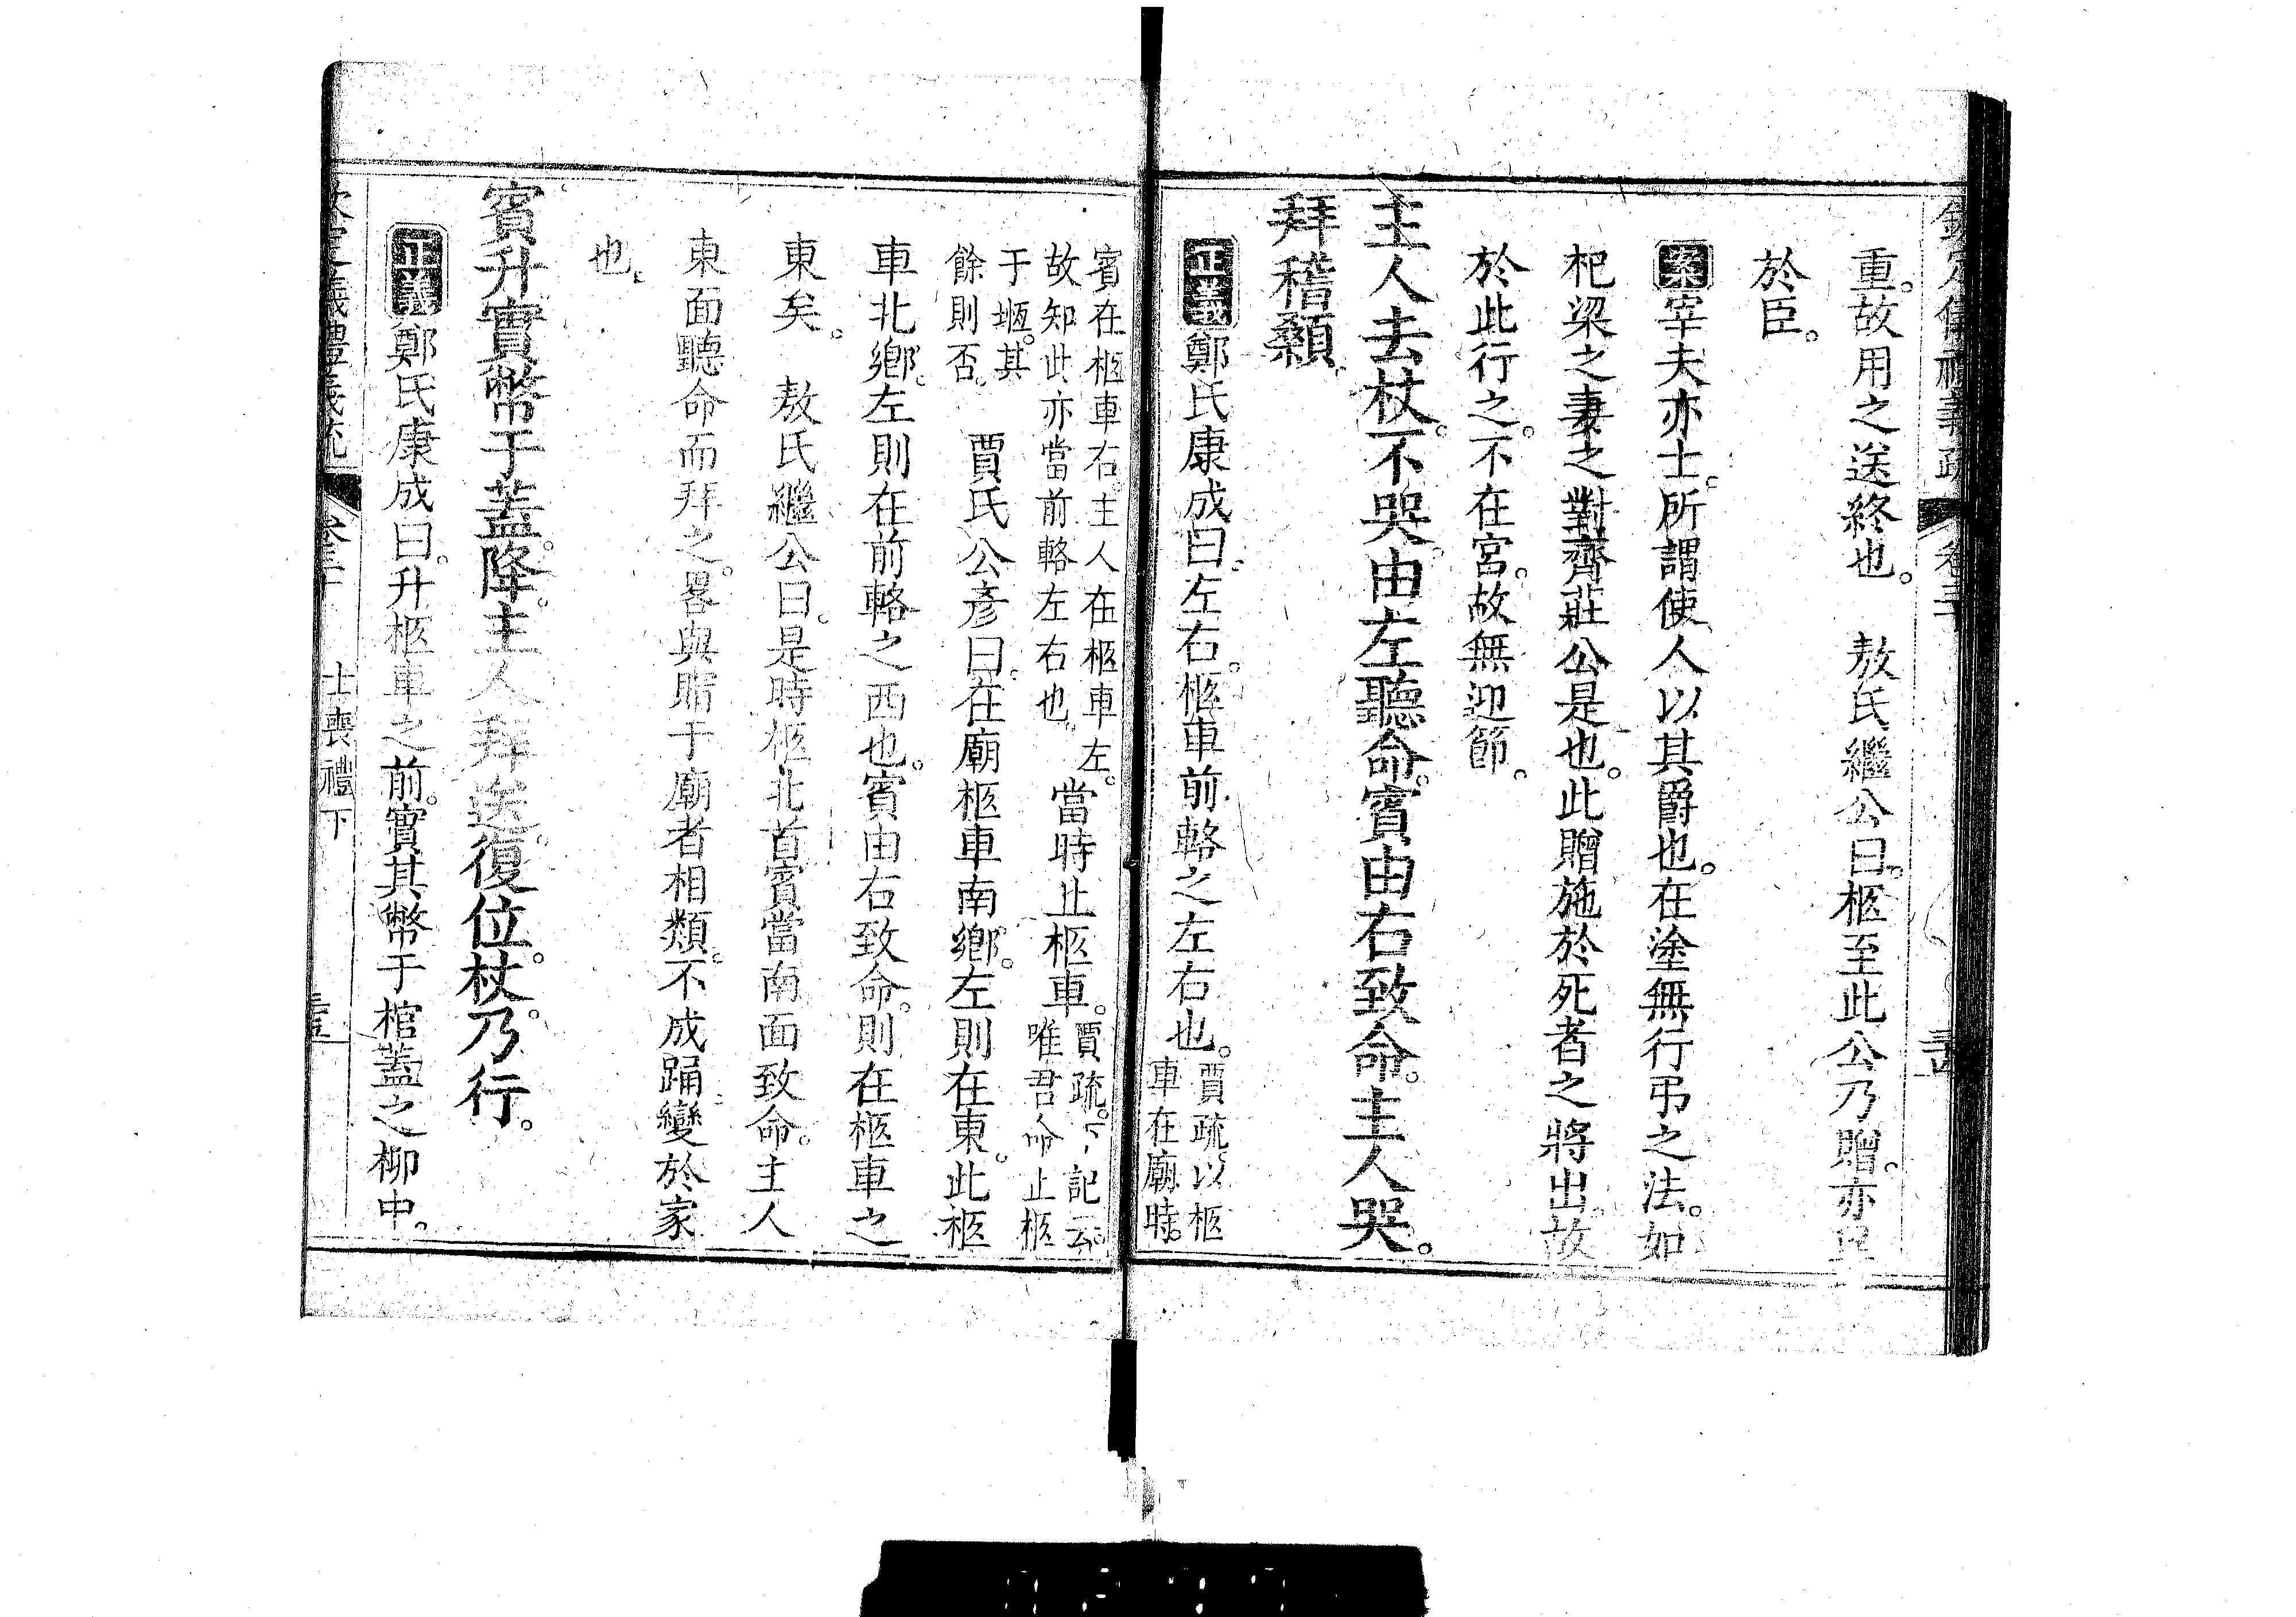 重。故用之送終也。　敖氏繼公曰。柩至此公乃贈。亦
於臣。
案宰夫亦士。所謂使人以其爵也。在塗無行弔之法。如
杞梁之妻之對齊莊公是也。此贈施於死者之將出。故
於此行之。不在宮。故無迎節。
主人去杖。不哭。由左聽命。賓由右致命。主人哭。
拜稽顙。
正義鄭氏康成曰。左右。柩車前輅之左右也。賈疏。以柩
車在廟時。
賓在柩車右。主人在柩車左。
故知此亦當前輅左右也。當時止柩車。賈疏。下記云。
唯君命止柩
于堩。其
餘則否。　賈氏公彥曰。在廟柩車南鄉。左則在東。此柩
車北鄉。左則在前輅之西也。賓由右致命。則在柩車之
東矣。　敖氏繼公曰。是時柩北首。賓當南面致命。主人
東面聽命而拜之。畧與賵于廟者相類。不成踊。變於家
也。
賓升實幣于蓋。降。主人拜送。復位。杖。乃行。
正義鄭氏康成曰。升柩車之前。實其幣于棺蓋之柳中。
欽定儀禮義疏　卷三十　士喪禮下